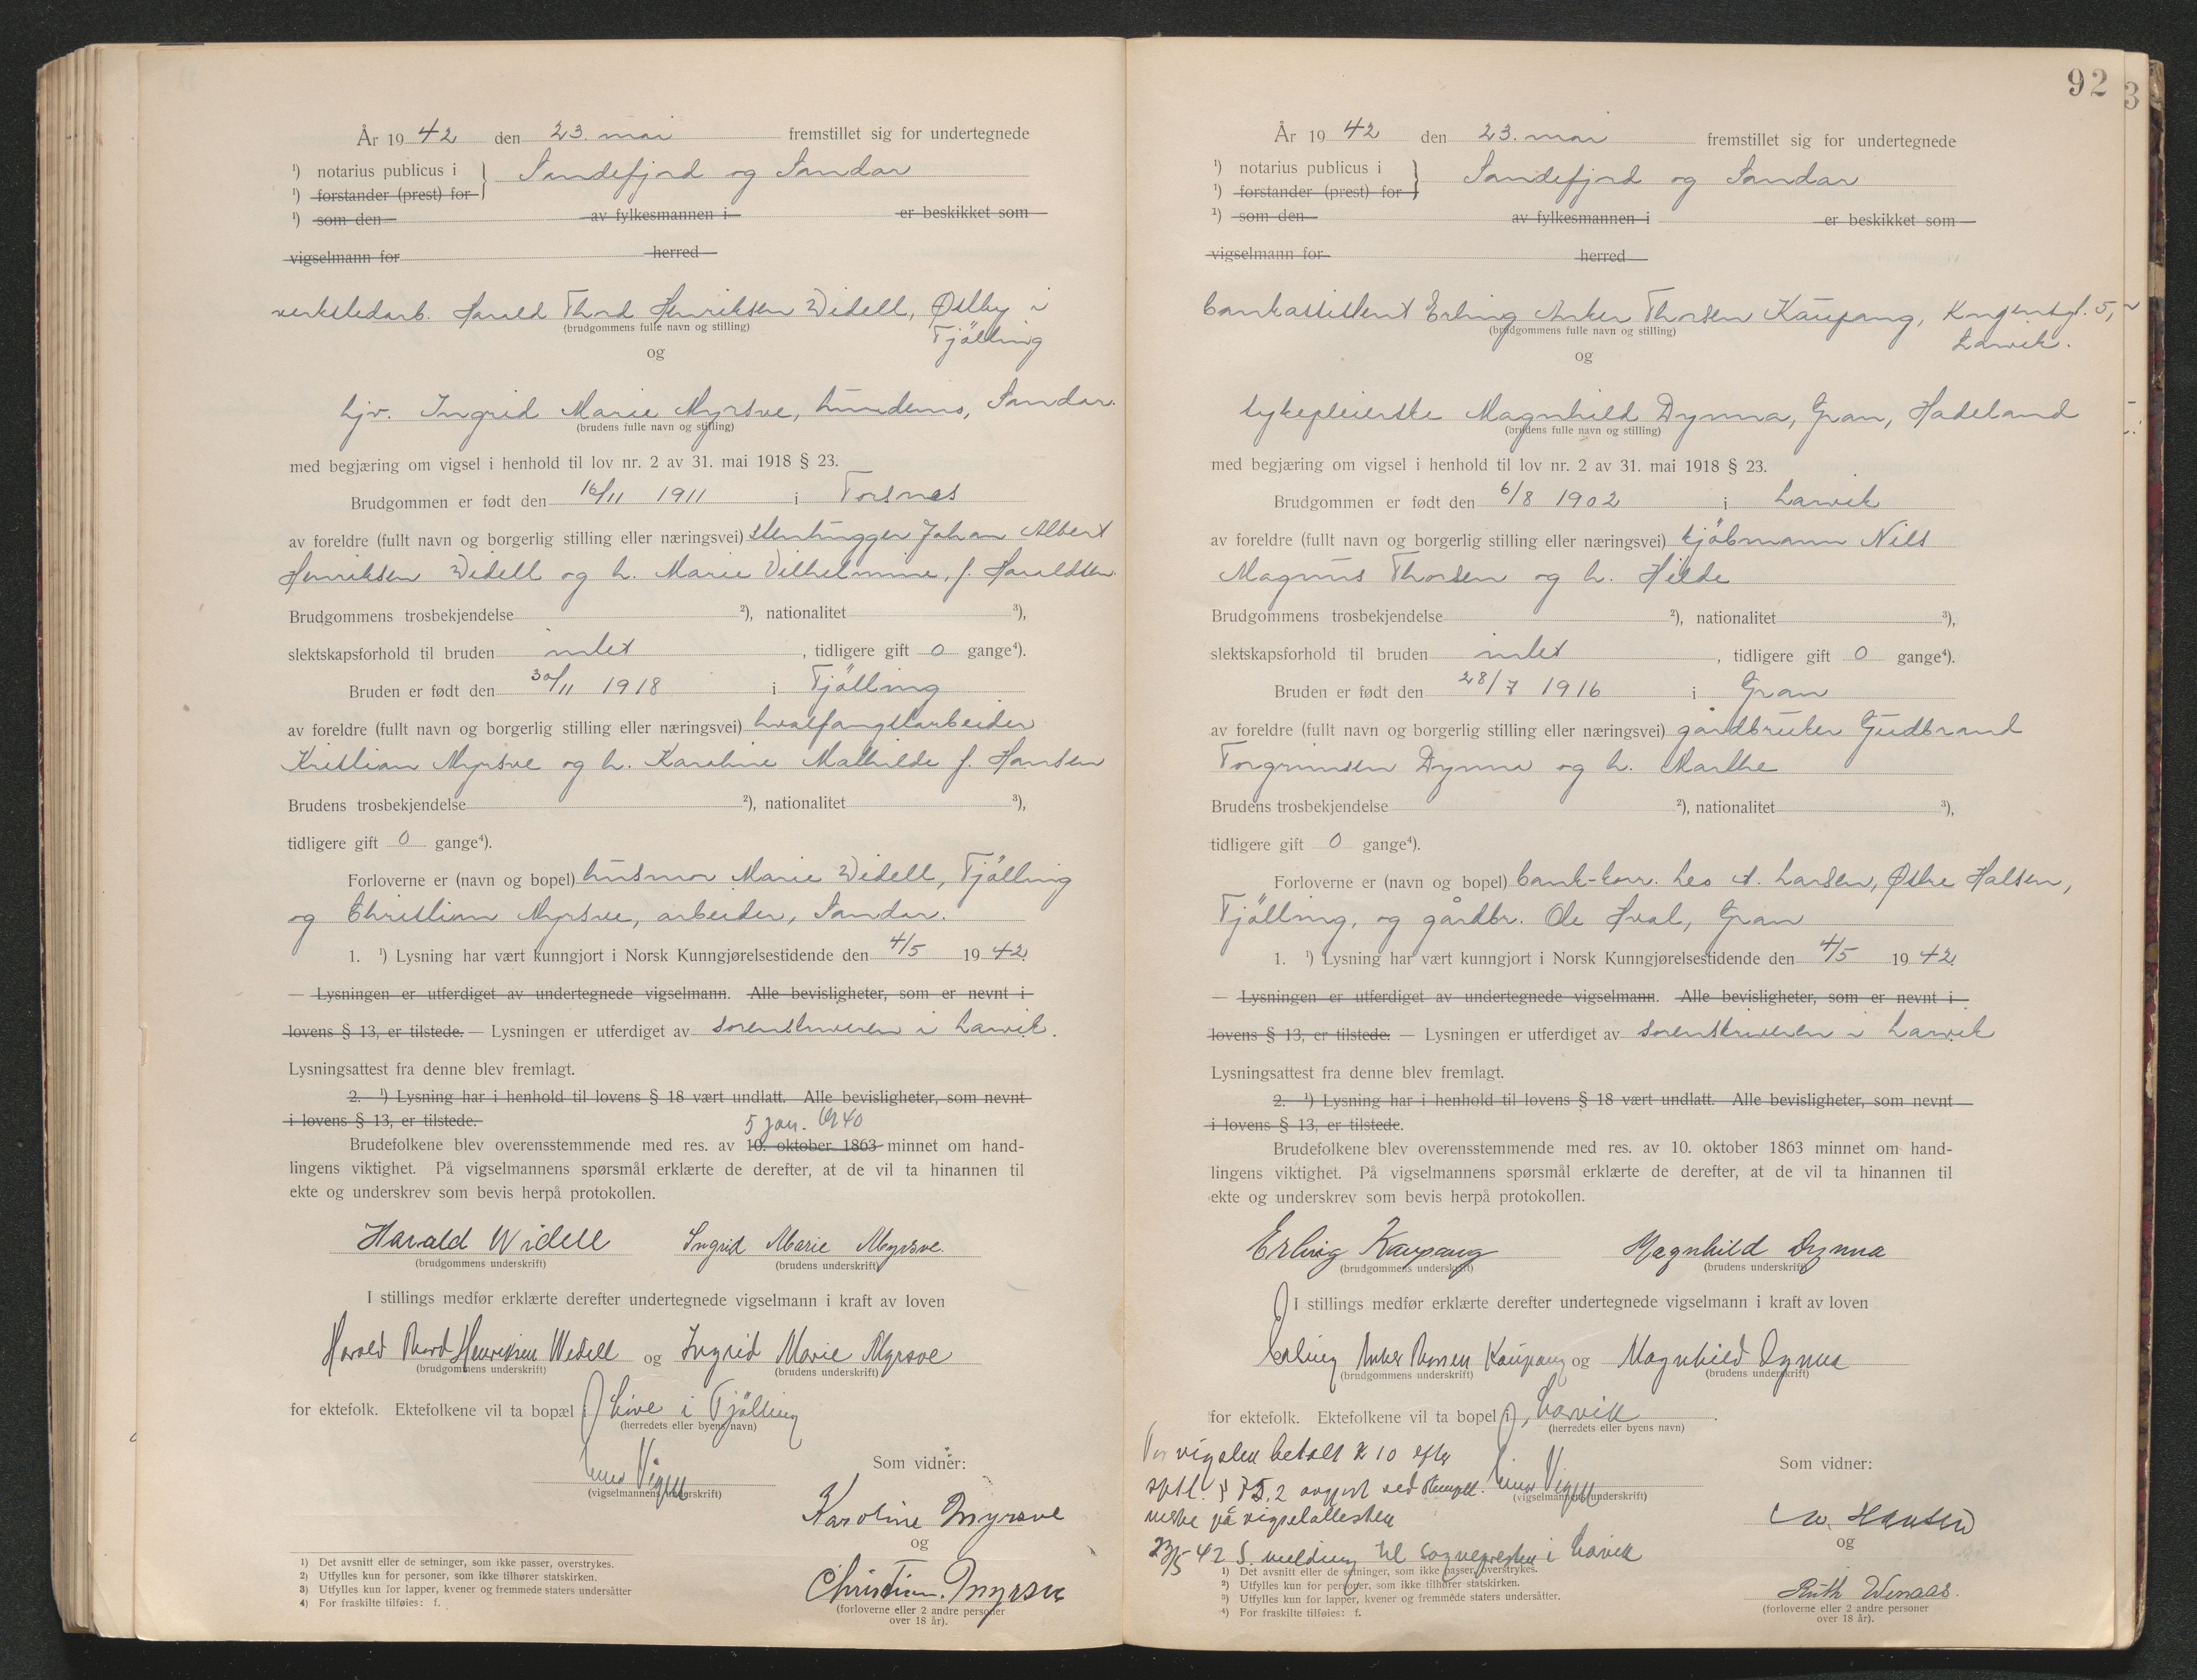 År 19 42 den 23. mai fremstillet sig for undertegnede
¹) notarius publicus i } Sandefjord og Sandar
¹) forstander (prest) for
¹) som den av fylkesmannen i er beskikket som
vigselmann for herred
verkstedarb. Harald Thord Henriksen Widell, Østby i
(brudgommens fulle navn og stilling) Tjölling
og
hjv. Ingrid Marie Myrsve, Sandar.
(brudens fulle navn og stilling)
med begjæring om vigsel i henhold til lov nr. 2 av 31. mai 1918 § 23.
Brudgommen er født den 16/11 1911 i Torsnes
av foreldre (fullt navn og borgerlig stilling eller næringsvei) stenhugger Johan Albert
Henriksen Widell og h. Marie Vilhelmine, f. Haraldsen.
Brudgommens trosbekjendelse ²), nationalitet ³),
slektskapsforhold til bruden intet , tidligere gift 0 gange⁴).
Bruden er født den 30/11 1918 i Tjölling
av foreldre (fullt navn og borgerlig stilling eller næringsvei) hvalfangstarbeider
Kristian Myrsve og h. Karoline Mathilde f. Hansen
Brudens trosbekjendelse ²), nationalitet ³),
tidligere gift 0 gange⁴).
Forloverne er (navn og bopel) husmor Marie Widell, Tjölling
og Christian Myrsve, arbeider, Sandar.
1. ¹) Lysning har vært kunngjort i Norsk Kunngjørelsestidende den 4/5 19 42.
— Lysningen er utferdiget av undertegnede vigselmann. Alle bevisligheter, som er nevnt i
lovens § 13, er tilstede. — Lysningen er utferdiget av sorenskriveren i Larvik.
Lysningsattest fra denne blev fremlagt.
2. ¹) Lysning har i henhold til lovens § 18 vært undlatt. Alle bevisligheter, som nevnt
i lovens § 13, er tilstede.
5 jan. 1940
Brudefolkene blev overensstemmende med res. av 10. oktober 1863 minnet om hand-
lingens viktighet. På vigselmannens spørsmål erklærte de derefter, at de vil ta hinannen til
ekte og underskrev som bevis herpå protokollen.
Harald Widell Ingrid Marie Myrsve.
(brudgommens underskrift) (brudens underskrift)
I stillings medfør erklærte derefter undertegnede vigselmann i kraft av loven
Harald Thord Henriksen Widell og Ingrid Marie Myrsve
(brudgommens underskrift) (brudens underskrift)
for ektefolk. Ektefolkene vil ta bopæl i i Tjölling
(herredets eller byens navn)
Som vidner:
(vigselmannens underskrift)
Karoline Myrsve
og
Christian. Myrsve
(forloverne eller 2 andre personer
over 18 år).
1) Det avsnitt eller de setninger, som ikke passer, overstrykes.
2) Utfylles kun for personer, som ikke tilhører statskirken.
3) Utfylles kun for lapper, kvener og fremmede staters undersåtter
4) For fraskilte tilføies: f.
92
3
År 19 42 den 23. mai fremstillet sig for undertegnede
¹) notarius publicus i } Sandefjord og Sandar
¹) forstander (prest) for
¹) som den av fylkesmannen i er beskikket som
vigselmann for herred
bankassistent Erling Anker Thorsen Kaupang, Kongensgt. 5,
(brudgommens fulle navn og stilling) Larvik.
og
sykepleierske Magnhild Dynna, Gran, Hadeland
(brudens fulle navn og stilling)
med begjæring om vigsel i henhold til lov nr. 2 av 31. mai 1918 § 23.
Brudgommen er født den 6/8 1902 i Larvik
av foreldre (fullt navn og borgerlig stilling eller næringsvei) kjöbmann Nils
Magnus Thorsen og h. Hilde
Brudgommens trosbekjendelse ²), nationalitet ³),
slektskapsforhold til bruden intet , tidligere gift 0 gange⁴).
Bruden er født den 28/7 1916 i Gran
av foreldre (fullt navn og borgerlig stilling eller næringsvei) gårdbruker Gudbrand
Torgrimsen Dynna og h. Marthe
Brudens trosbekjendelse ²), nationalitet ³),
tidligere gift 0 gange⁴).
Forloverne er (navn og bopel) bank-kass. Leo A. Larsen, Østre Halsen,
Tjölling, og gårdbr. Ole Hval, Gran
1. ¹) Lysning har vært kunngjort i Norsk Kunngjørelsestidende den 4/5 19 42.
— Lysningen er utferdiget av undertegnede vigselmann. Alle bevisligheter, som er nevnt i
lovens § 13, er tilstede. — Lysningen er utferdiget av sorenskriveren i Larvik
Lysningsattest fra denne blev fremlagt.
2. ¹) Lysning har i henhold til lovens § 18 vært undlatt. Alle bevisligheter, som nevnt
i lovens § 13, er tilstede.
Brudefolkene blev overensstemmende med res. av 10. oktober 1863 minnet om hand-
lingens viktighet. På vigselmannens spørsmål erklærte de derefter, at de vil ta hinannen til
ekte og underskrev som bevis herpå protokollen.
Erling Kaupang Magnhild Dynna
(brudgommens underskrift) (brudens underskrift)
I stillings medfør erklærte derefter undertegnede vigselmann i kraft av loven
Erling Anker Thorsen Kaupang og Magnhild Dynna
(brudgommens underskrift) (brudens underskrift)
for ektefolk. Ektefolkene vil ta bopel i, Larvik .
(herredets eller byens navn)
For vigslen betalt k 10 efter
Som vidner:
sptl. § 75, 2 avgjort ved stempel
(vigselmannens underskrift)
merke på vigselattesten
W. Hansen
23/5 42 S. melding til sognepresten i Larvik
og
Ruth Wenaas.
(forloverne eller 2 andre personer
over 18 år).
1) Det avsnitt eller de setninger, som ikke passer, overstrykes.
2) Utfylles kun for personer, som ikke tilhører statskirken.
3) Utfylles kun for lapper, kvener og fremmede staters undersåtter.
4) For fraskilte tilføies: f.